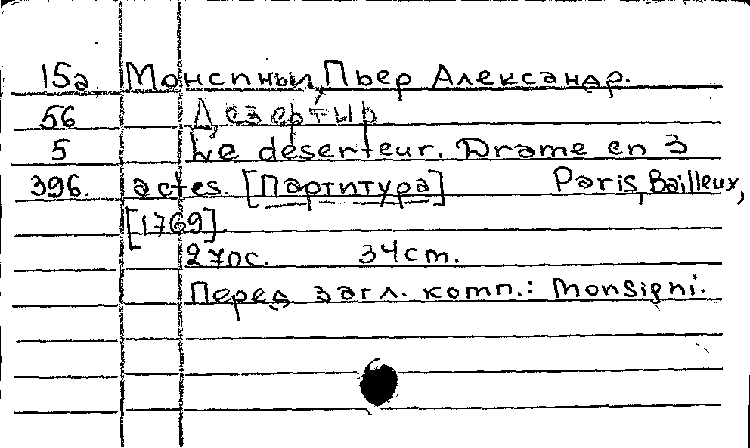 15а Монсиньи, Пьер Александр.
56 Дезертир
5 Le déserteur. Drame en 3
396. actes. [Партитура] Paris, Bailleux,
[1769].
270с. 34cm.
Перед загл. комп.: Monsigni.